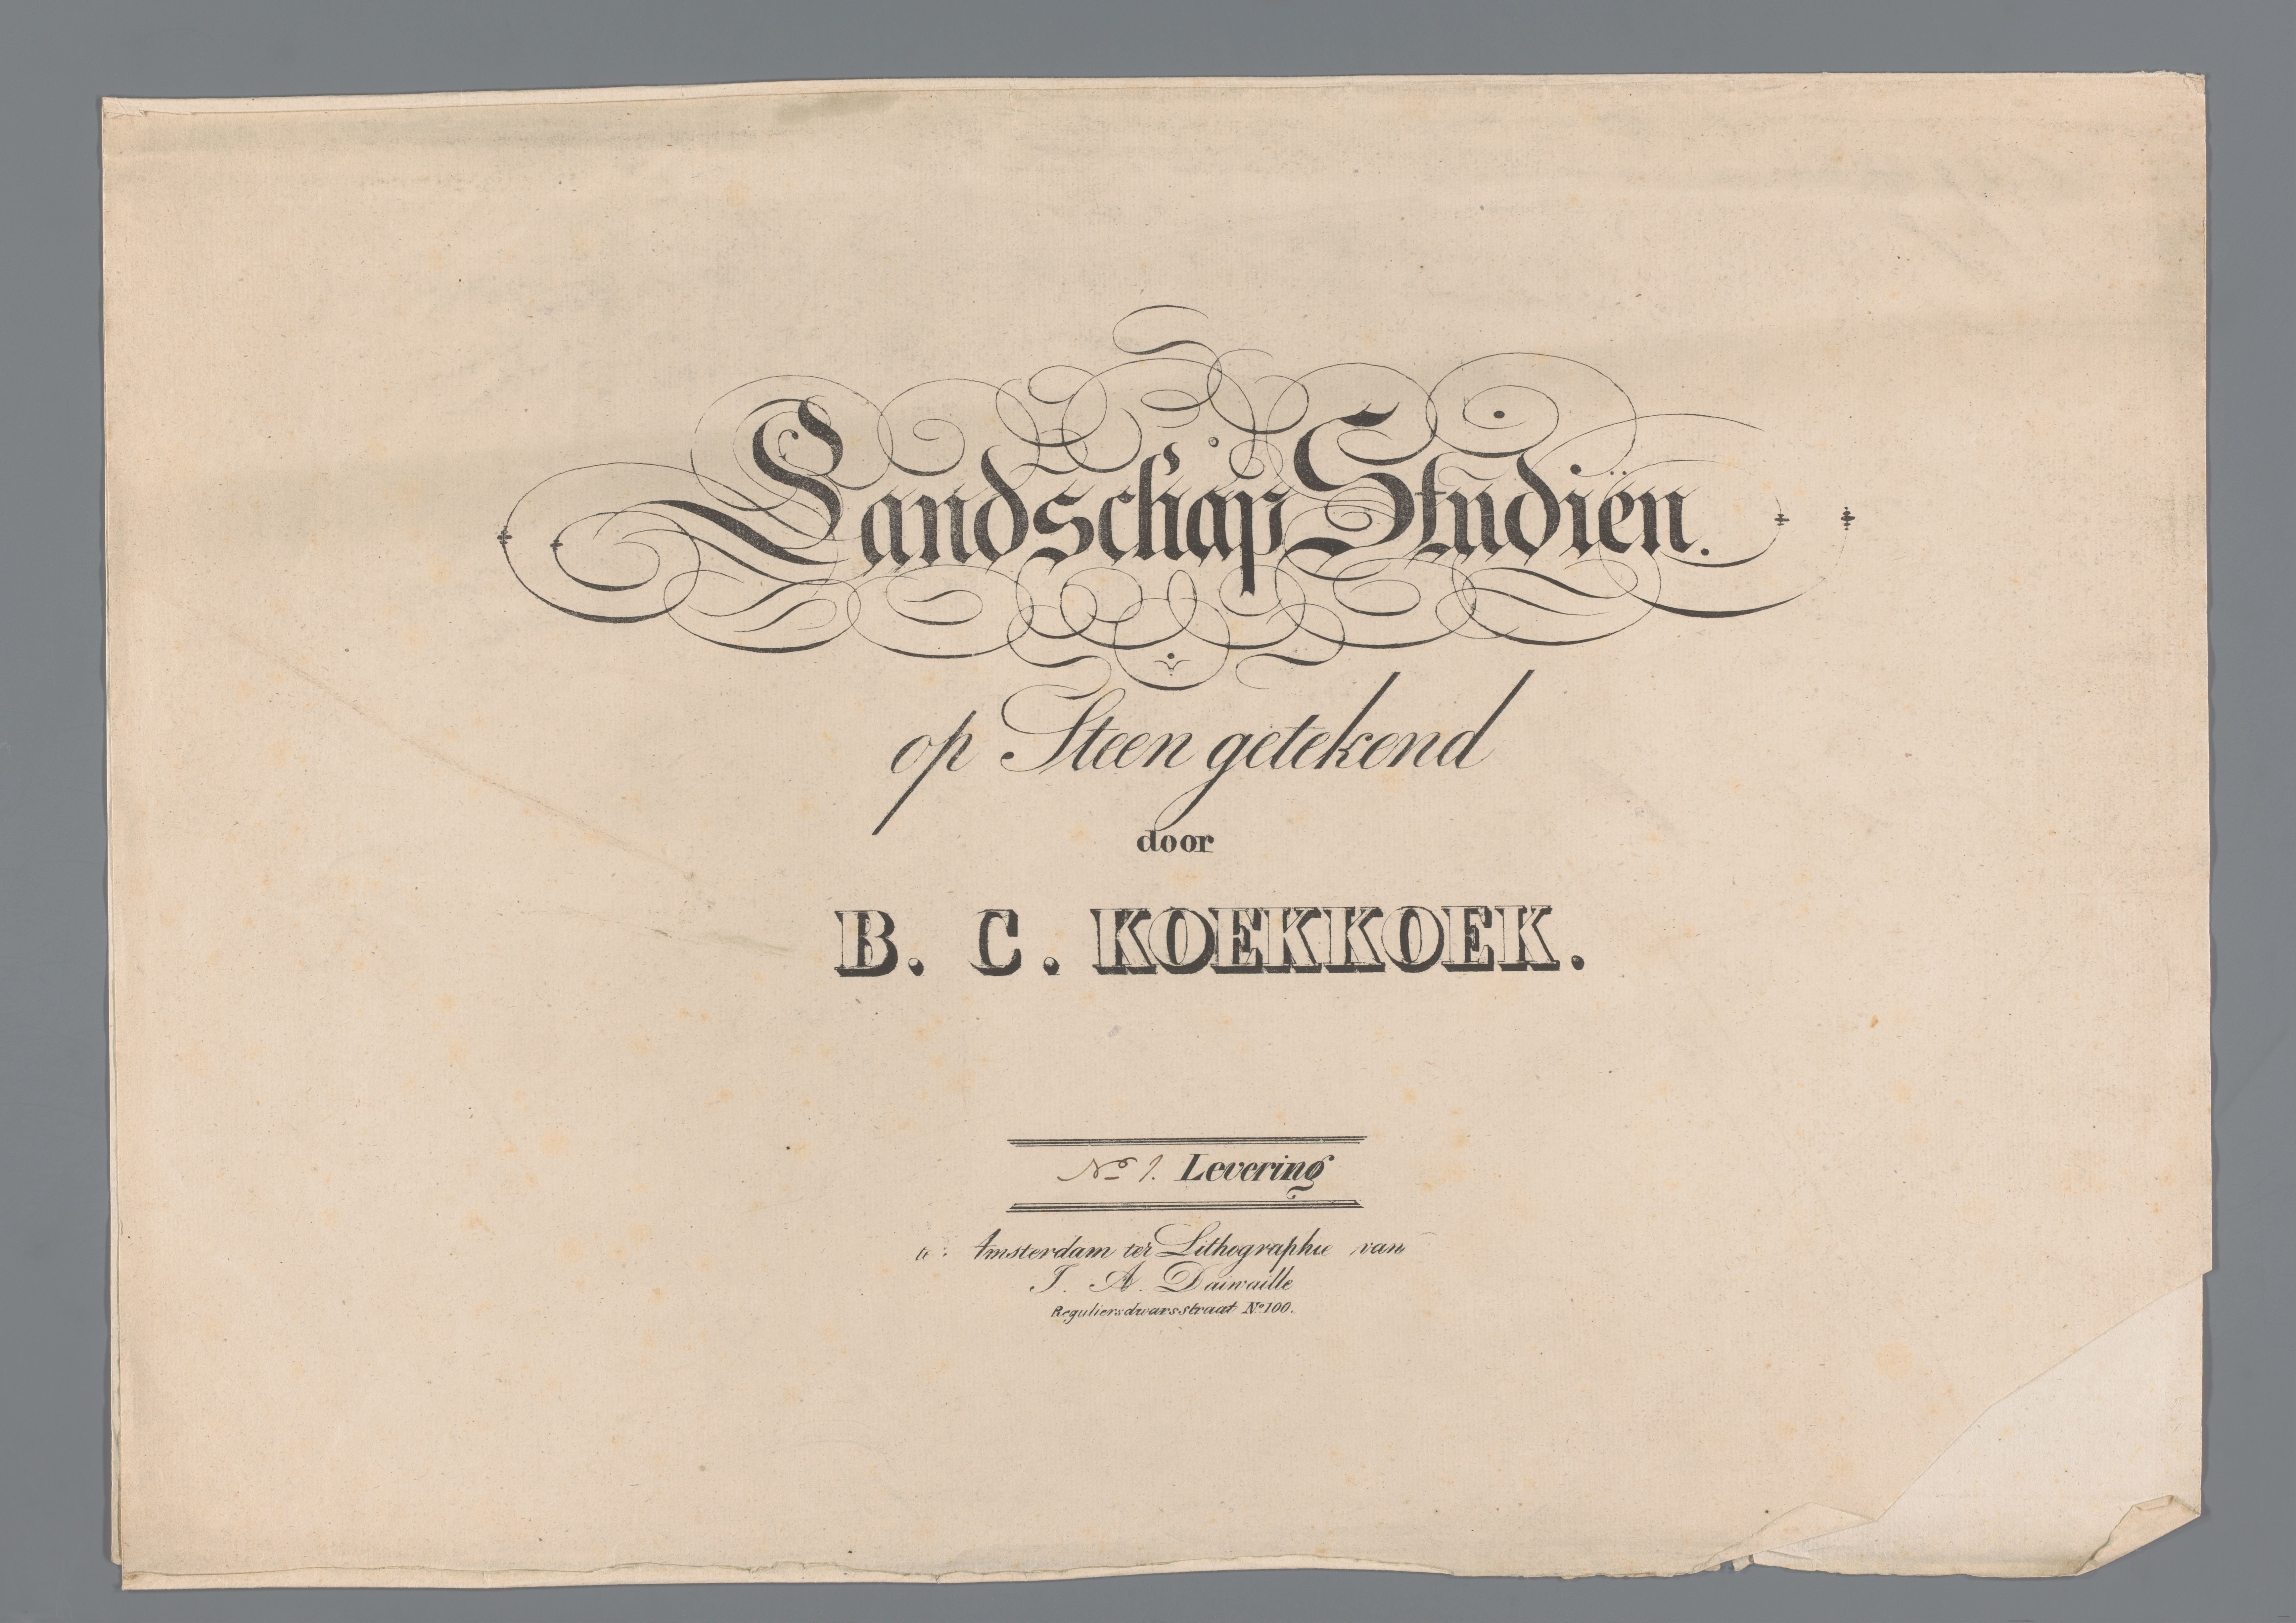 Landschap Studiën.
op Steen getekend
door
B. C. KOEKKOEK.
No 1. Levering
te Amsterdam ter Lithographie van
J. A. Daiwaille
Reguliersdwarsstraat No 100.